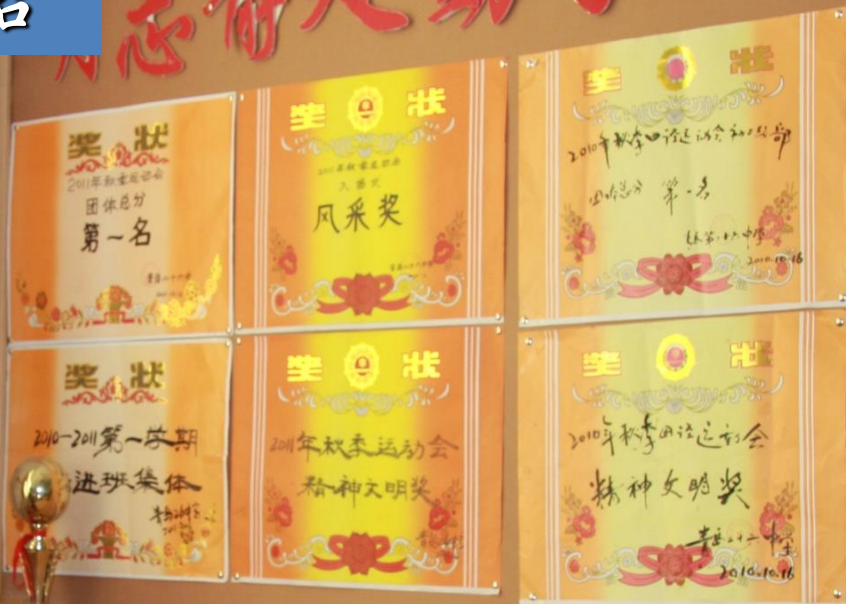 奖 状
2011年秋季运动会
团体总分
第一名
奖 状
2011年秋季运动会
入场式
风采奖
奖 状
2010年秋季田径运动会初中部
团体总分 第一名
2010.10.16
奖 状
2010—2011第一学期
进班集体
奖 状
2011年秋季运动会
精神文明奖
奖 状
2010年秋季田径运动会
精神文明奖
青岛二十六中学
2010.10.16